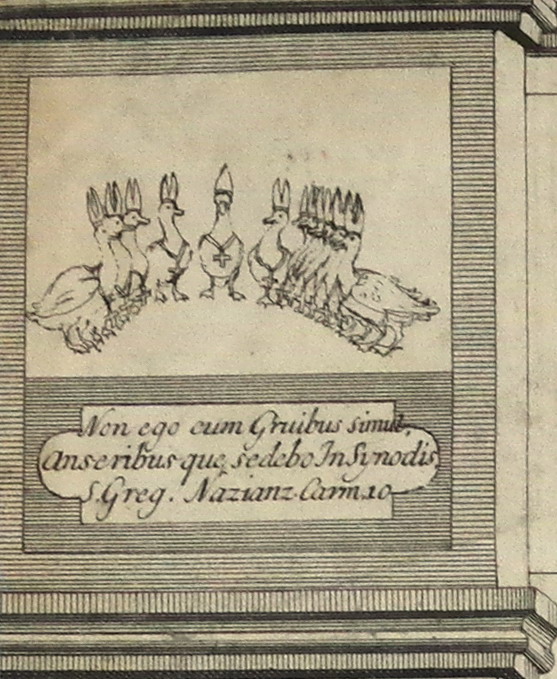 Non ego cum Gruibus simul,
Anseribus que sedebo In Synodis.
S. Greg. Nazianz. Carm. 10